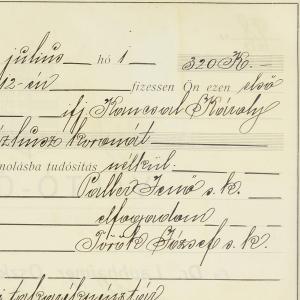 julius hó 1 320 K.
12-én fizessen Ön ezen első
ifj Kancsal Károly
húsz koronát
molásba tudósítás nélkül.
Paller Jenő s. k.
elfogadom
Török József s. k.
takarékpénztár